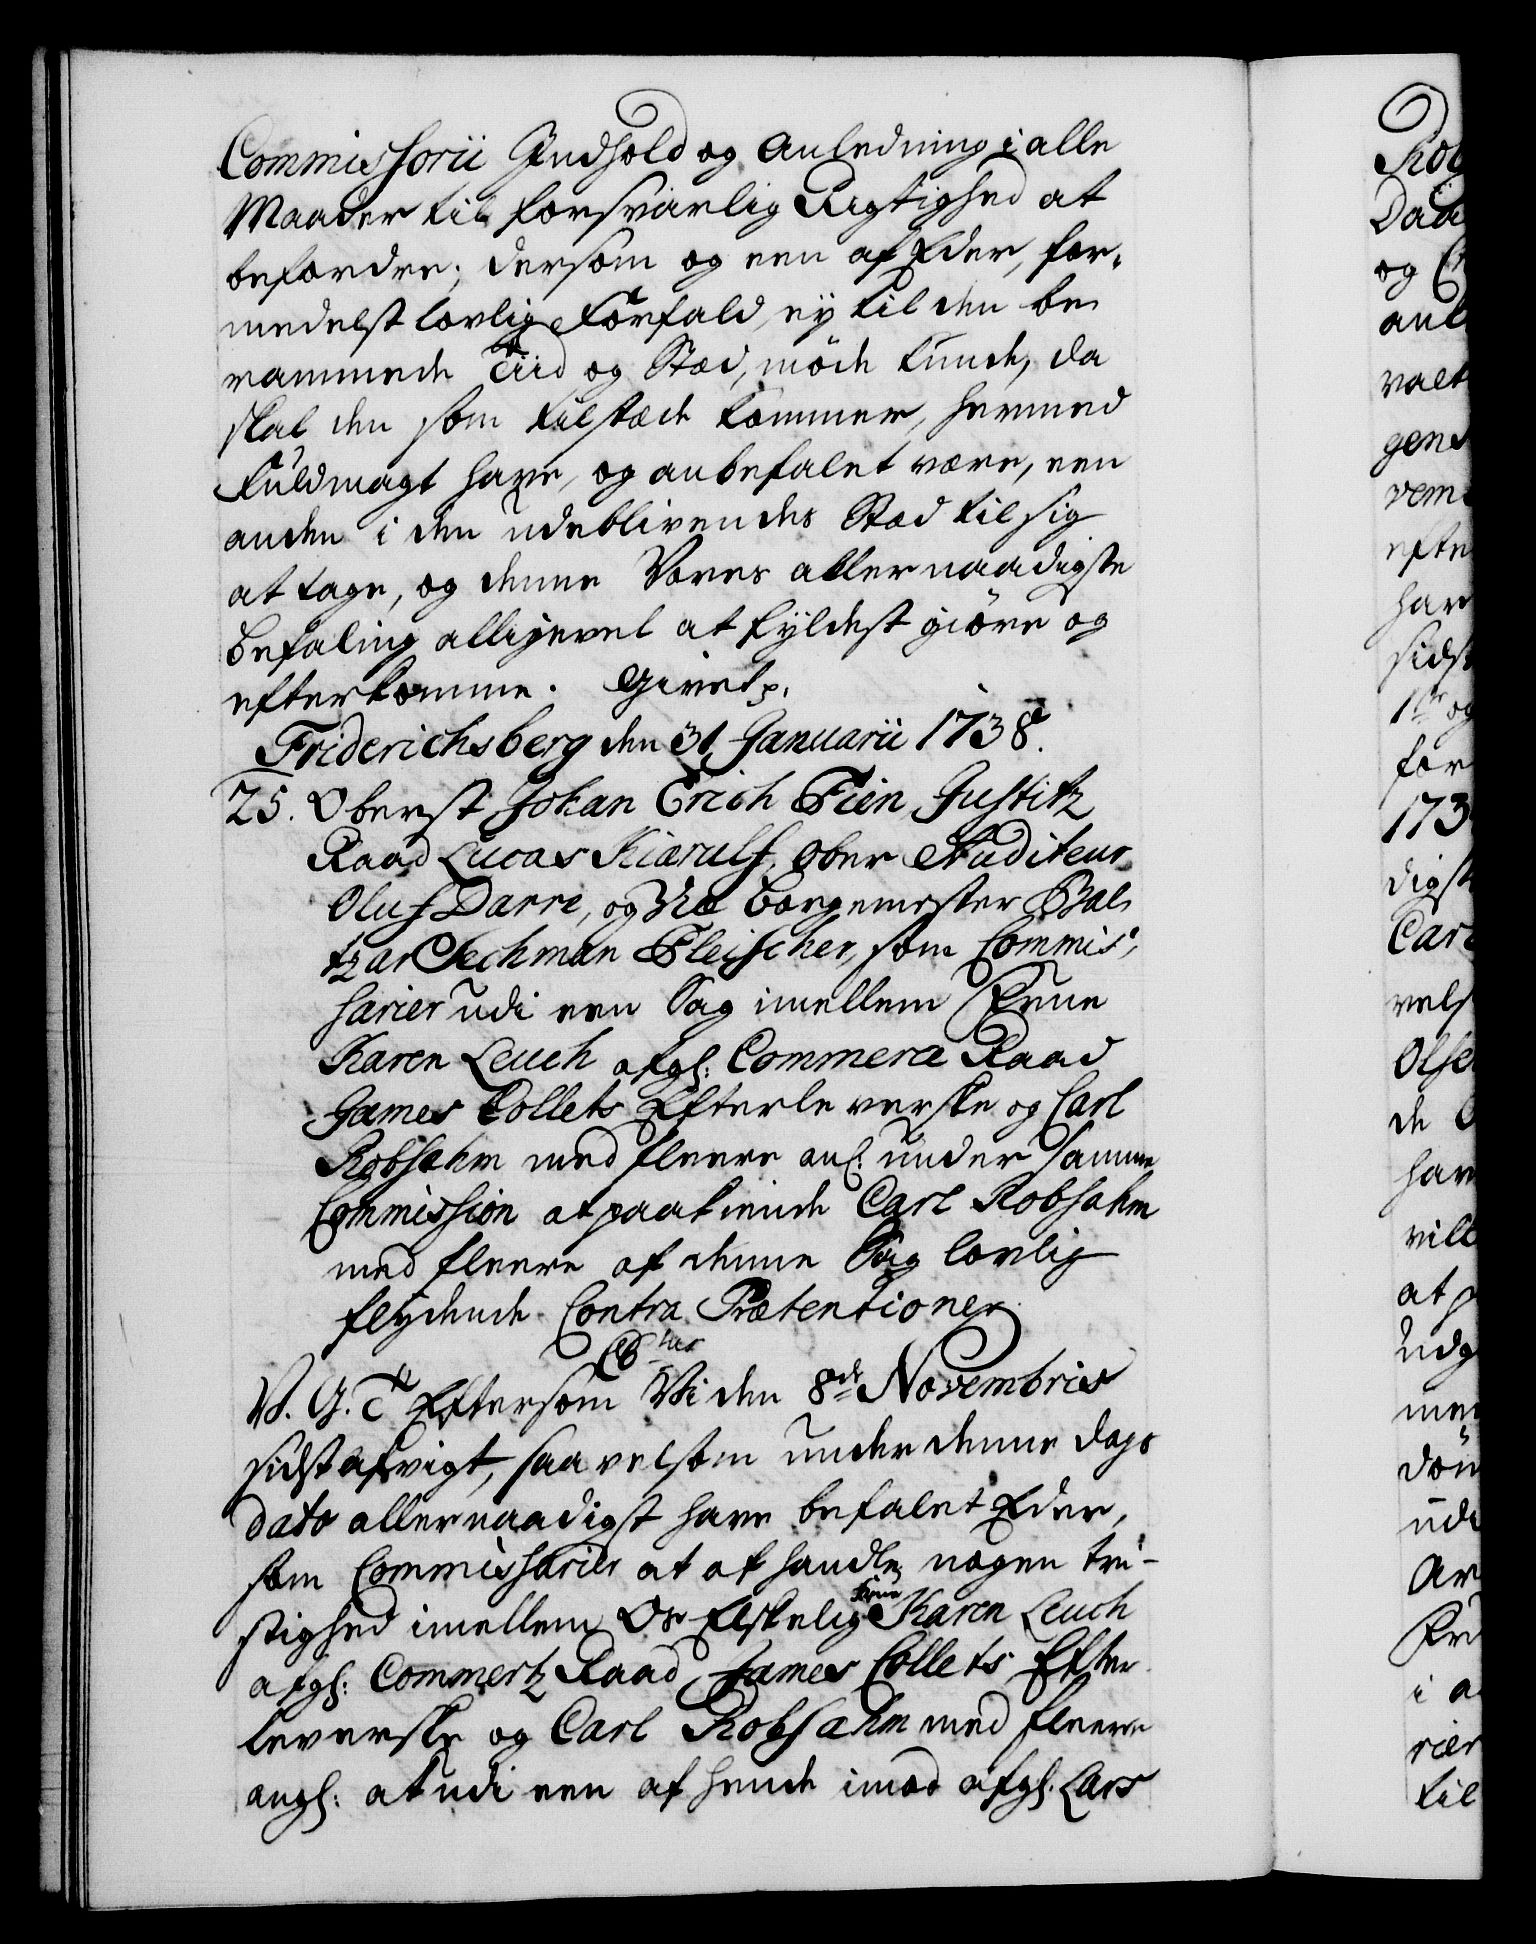 Commissorii Indhold og Anledning i alle
Maader til forsvarlig Rigtighed at
befordre; dersom og een af Eder, for-
medelst lovlig Forfald, ey til den be
rammede Tiid og Stæd, møde kunde, da
skal den som tilstæde kommer, hermed
Fuldmagt have, og anbefalet være, een
anden i den udeblivendes Stæd til sig
at tage, og denne Vores allernaadigste
Befaling alligevel at fyldest giøre og
efterkomme. Givet p.
Friderichsberg den 31 Januarii 1738.
25. Oberst Johan Erich Fien, Justitz
Raad Lucas Kiærulf, Ober Auditeur
Oluf Darre, og Vice Borgemester Bal
tzar Sechman Fleischer, som Commis-
sarier udi een Sag imellem Frue
Karen Leuch afgl: Commerce Raad
James Collets Efterleverske og Carl
Robsahm med fleere anl. under samme
Commission at paakiende Carl Robsahm
med fleere af denne Sag lovlig
flydende Contra Prætentioner.
V. G. T. Eftersom Vi den 8de Novembris
sidst afvigt, saavelsom under denne Dags
dato allernaadigst have befalet Eder,
som Commissarier at afhandle nogen tvi-
stighed imellem Os Elskelig Frue Karen Leuch
afgl: Commertz Raad James Collets Efter
leverske og Carl Robsahm med fleere
angl: at udi een af hende imod afgl. Lars